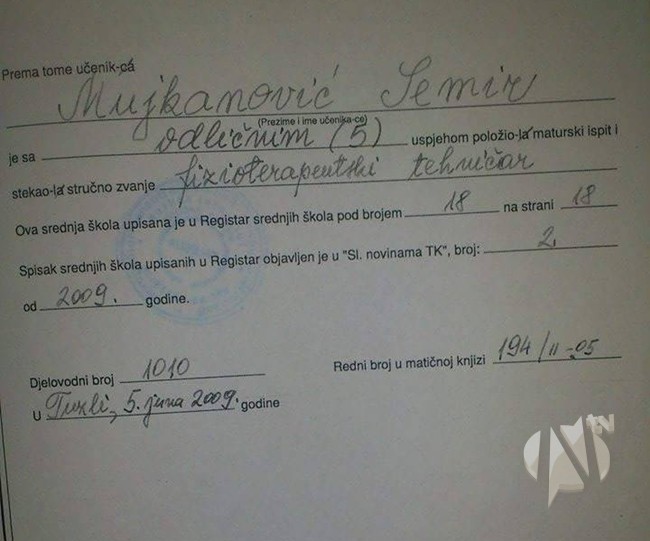 Prema tome učenik-ca
Mujkanović Semir
(Prezime i ime učenika-ce)
je sa odličnim (5) uspjehom položio-la maturski ispit i
stekao-la stručno zvanje fizioterapeutski tehničar
Ova srednja škola upisana je u Registar srednjih škola pod brojem 18 na strani 18
Spisak srednjih škola upisanih u Registar objavljen je u "Sl. novinama TK", broj: 2.
od 2009. godine.
Djelovodni broj 1010
Redni broj u matičnoj knjizi 194/II-05
U Tuzli, 5. juna 2009. godine
NTV